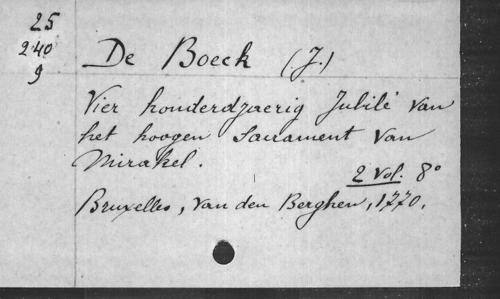 25
240
9
De Boeck (J.)
Vier honderdjaerig Jubilé van
het hoogen Sacrament van
Mirakel.
2 vol. 8°
Bruxelles, van den Berghen, 1770.